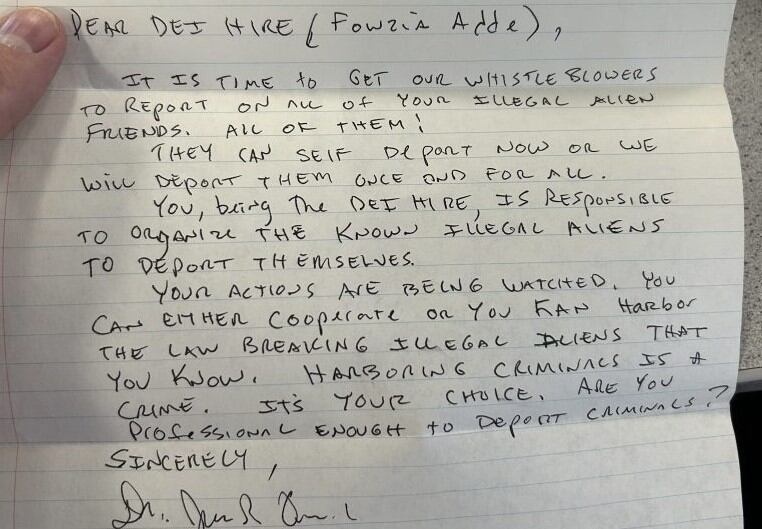 DEAR DEI HIRE (Fowzia Adde),
IT IS TIME to GET OUR WHISTLEBLOWERS
TO REPORT ON ALL OF YOUR ILLEGAL ALIEN
FRIENDS. ALL OF THEM!
THEY CAN SELF DEPORT NOW OR WE
WILL DEPORT THEM ONCE AND FOR ALL.
YOU, being The DEI HIRE, IS RESPONSIBLE
TO ORGANIZE THE KNOWN ILLEGAL ALIENS
TO DEPORT THEMSELVES.
YOUR ACTIONS ARE BEING WATCHED. YOU
CAN EITHER COOPERATE OR YOU KAN HARBOR
THE LAW BREAKING ILLEGAL ALIENS THAT
YOU KNOW. HARBORING CRIMINALS IS A
CRIME. IT'S YOUR CHOICE. ARE YOU
PROFESSIONAL ENOUGH TO DEPORT CRIMINALS?
SINCERELY,
Dr.